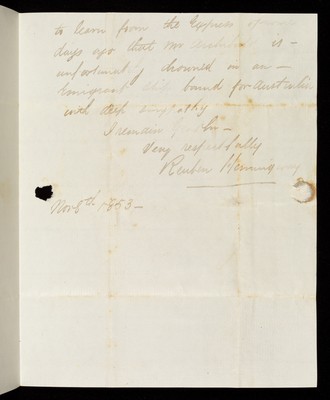 to learn from the Express
days ago that Mr is -
unfortunately drowned in an -
Emigrant bound for Australia
with deep sympathy
I remain
Very respectfully
Reuben Hemingway
Nov 8th 1853 -